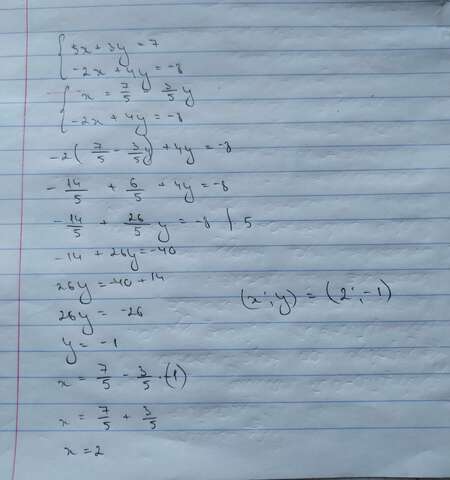 5x+3y=7
-2x+4y=-8
-x = 7/5 - 3/5 y
-2x+4y=-8
-2(7/5 - 3/5 y) + 4y = -8
-14/5 + 6/5 + 4y = -8
-14/5 + 26/5 y = -8 | 5
-14 + 26y = -40
26y = -40 + 14
(x;y) = (2;-1)
26y = -26
y = -1
x = 7/5 - 3/5 · (1)
x = 7/5 + 3/5
x = 2